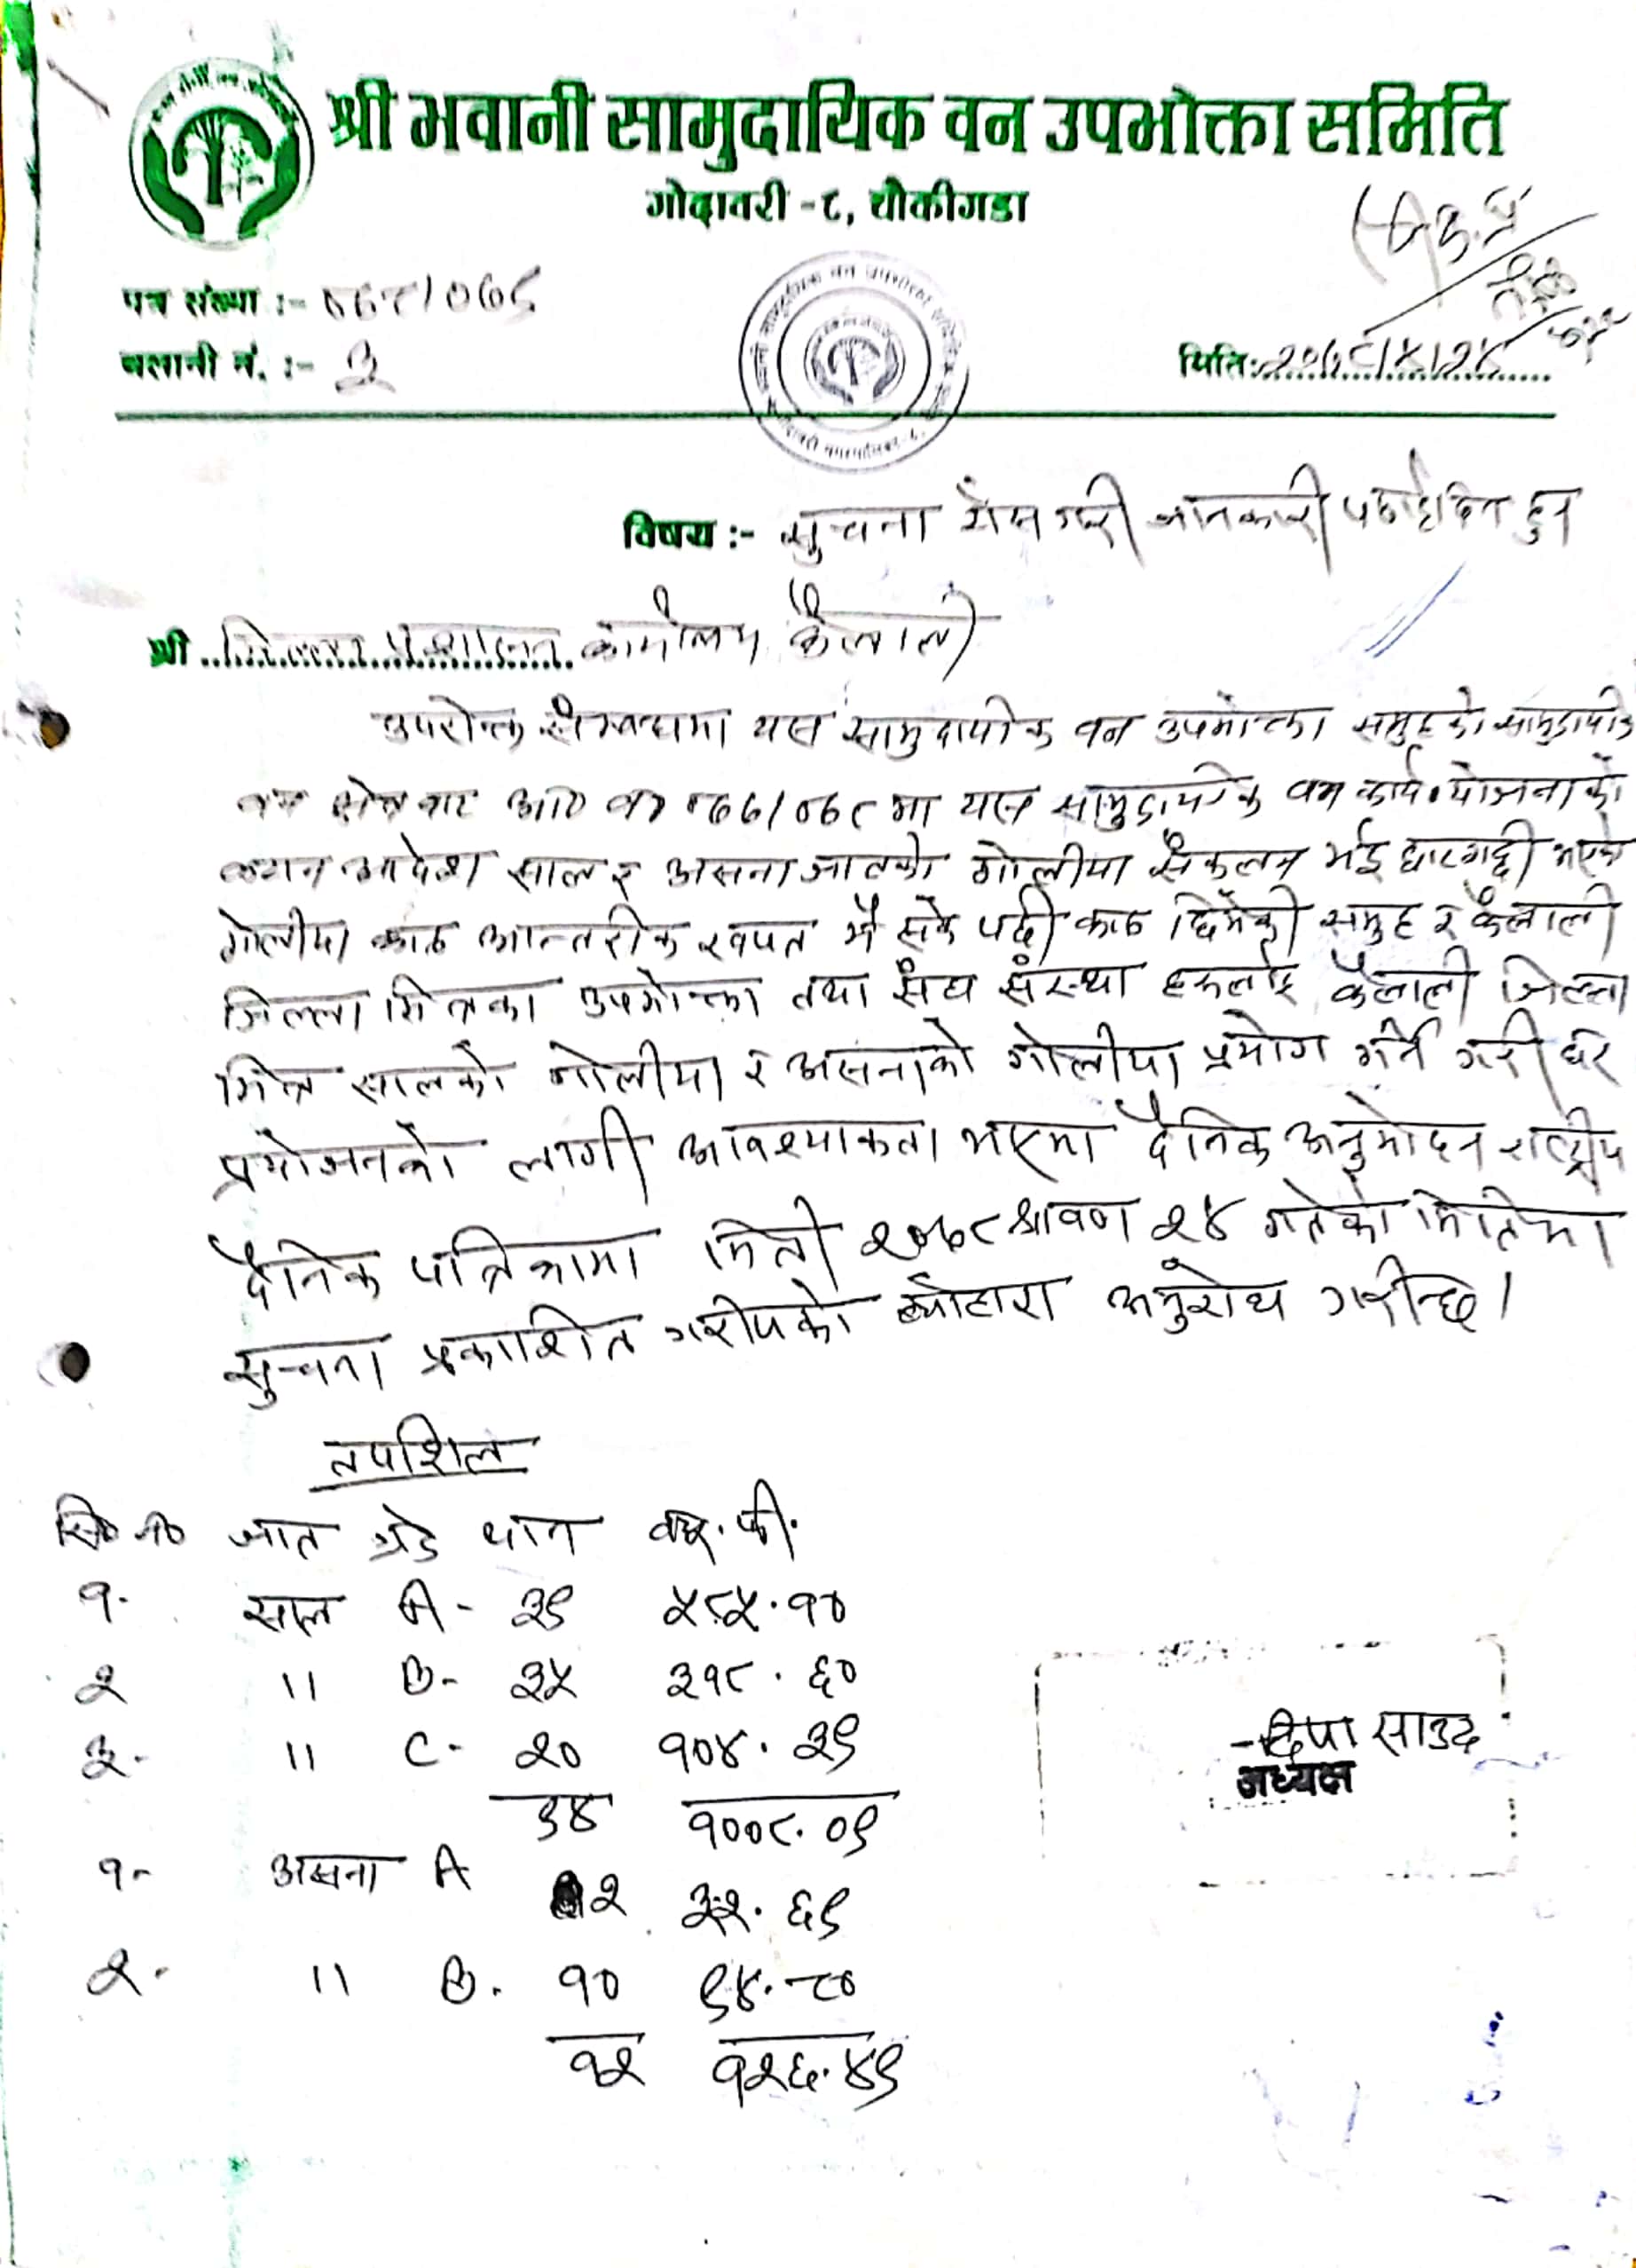 श्री भवानी सामुदायिक वन उपभोक्ता समिति
गोदावरी -८, चौकीगडा
पत्र संख्या :- ०७८/०७९
चलानी नं. :- ३
मिति: २०७८/४/२४
विषय :- सुचना टाँस गरी जानकारी पठाईदिने हुन
श्री जिल्ला प्रशासन कार्यालय, कैलाली
उपरोक्त सम्बन्धमा यस सामुदायीक वन उपभोक्ता समुहको सामुदायीक
वन क्षेत्र बाट आ०व० ०७७/०७८ मा यस सामुदायीक वन कार्य योजनाको
साल र असना जातको गोलीया संकलन भई घाटगद्दी भएको
गोलीया काठ आन्तरीक खपत भै सके पछी काठ छिमेकी समुह र कैलाली
जिल्ला भित्रका उपभोक्ता तथा संघ संस्था हरुलाई कैलाली जिल्ला
भित्र सालको गोलीया र असनाको गोलीया प्रयोग गर्ने गरी घर
प्रयोजनको लागी आवश्याकता भएमा दैनिक अनुमोदन राष्ट्रीय
दैनिक पत्रिकामा मिती २०७८ श्रावण २४ गतेको मितिमा
सुचना प्रकाशित गरीएको ब्योहोरा अनुरोध गरीन्छ।
तपशिल
सि० न० जात ग्रेड थान क्यू. फी.
१- साल A - ३९ ५८५.१०
२ " B- ३५ ३१८.६०
३- " C- २० १०४.३९
९४ १००८.०९
१- असना A २ ३२.६९
२- " B. १० ९४.८०
१२ १२६.४९
दिपा साउद
अध्यक्ष